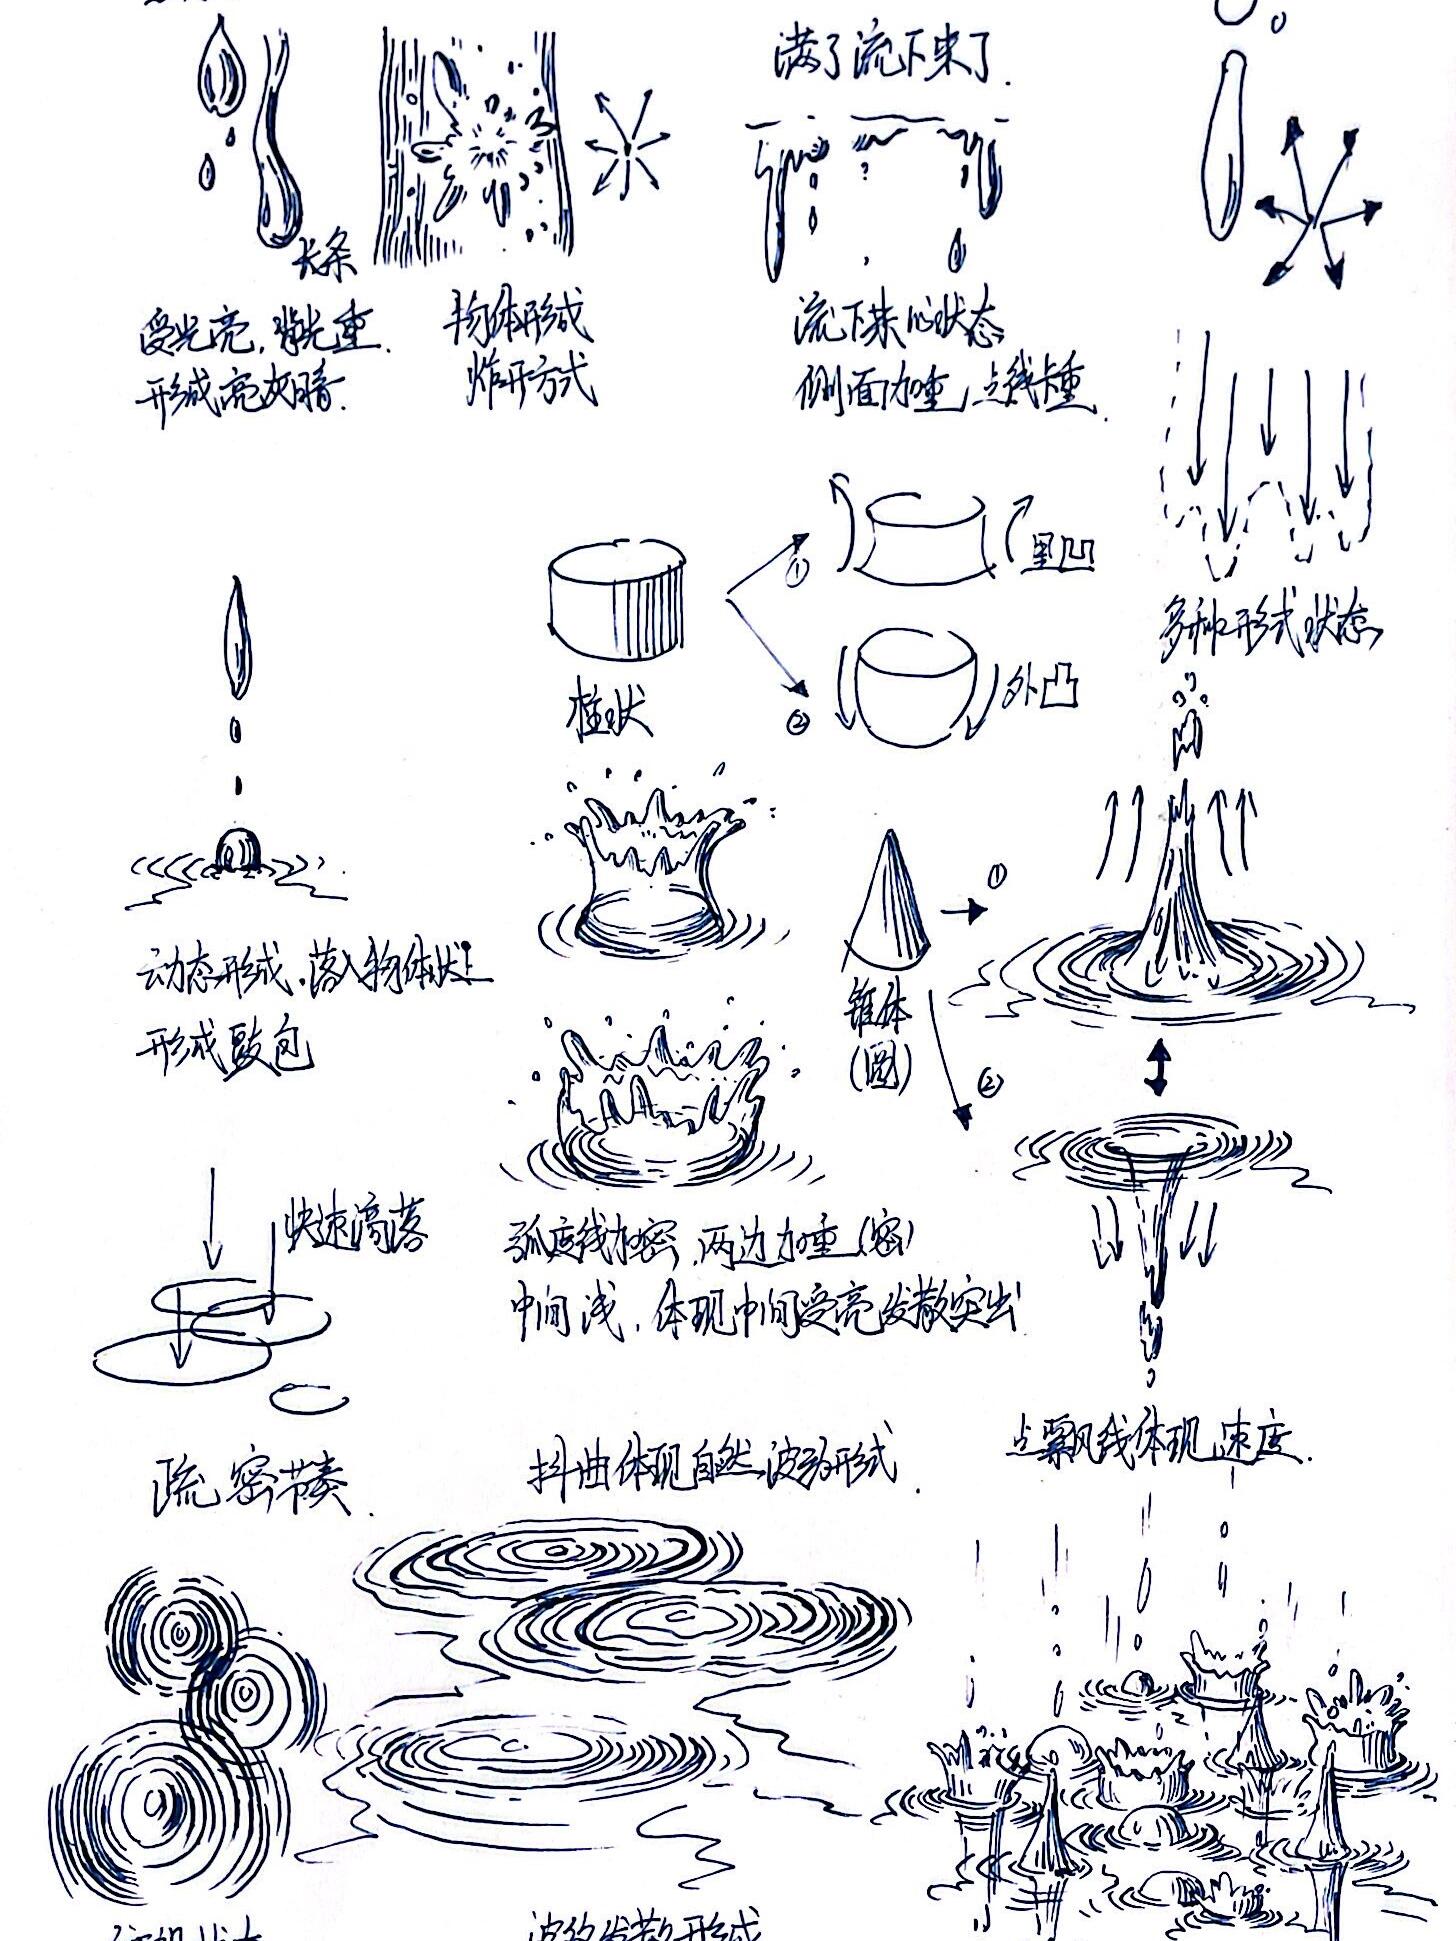 满了流下来了.
长条
受光亮,背光重.
形成亮灰暗.
物体形成
炸开方式
流下来的状态
侧面加重,点线卡重.
① 里凹
② 外凸
柱状
多种形式状态
动态形成,落入物体状
形成鼓包
锥体
(圆)
①
②
快速滴落
弧度线加密,两边加重(密)
中间浅,体现中间受亮发散突出
疏密节奏.
抖曲体现自然波动形式.
点飘线体现速度.
波纹发散形成